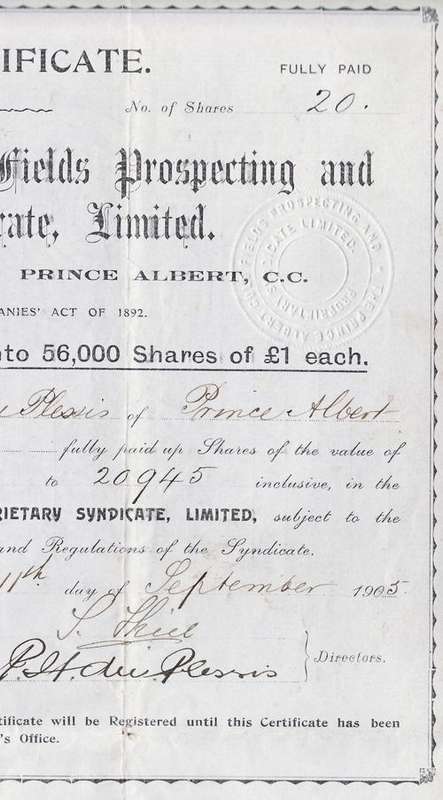 IFICATE.
FULLY PAID
No. of Shares 20.
Fields Prospecting and
cate, Limited.
PRINCE ALBERT, C.C.
THE PRINCE ALBERT GOLD FIELDS PROSPECTING AND
PROPRIETARY SYNDICATE LIMITED.
ANIES' ACT OF 1892.
nto 56,000 Shares of £1 each.
Plessis of Prince Albert
fully paid up Shares of the value of
to 20945 inclusive, in the
RIETARY SYNDICATE, LIMITED, subject to the
and Regulations of the Syndicate.
11th day of September 1905
S.
P.H. du Plessis
Directors.
tificate will be Registered until this Certificate has been
's Office.